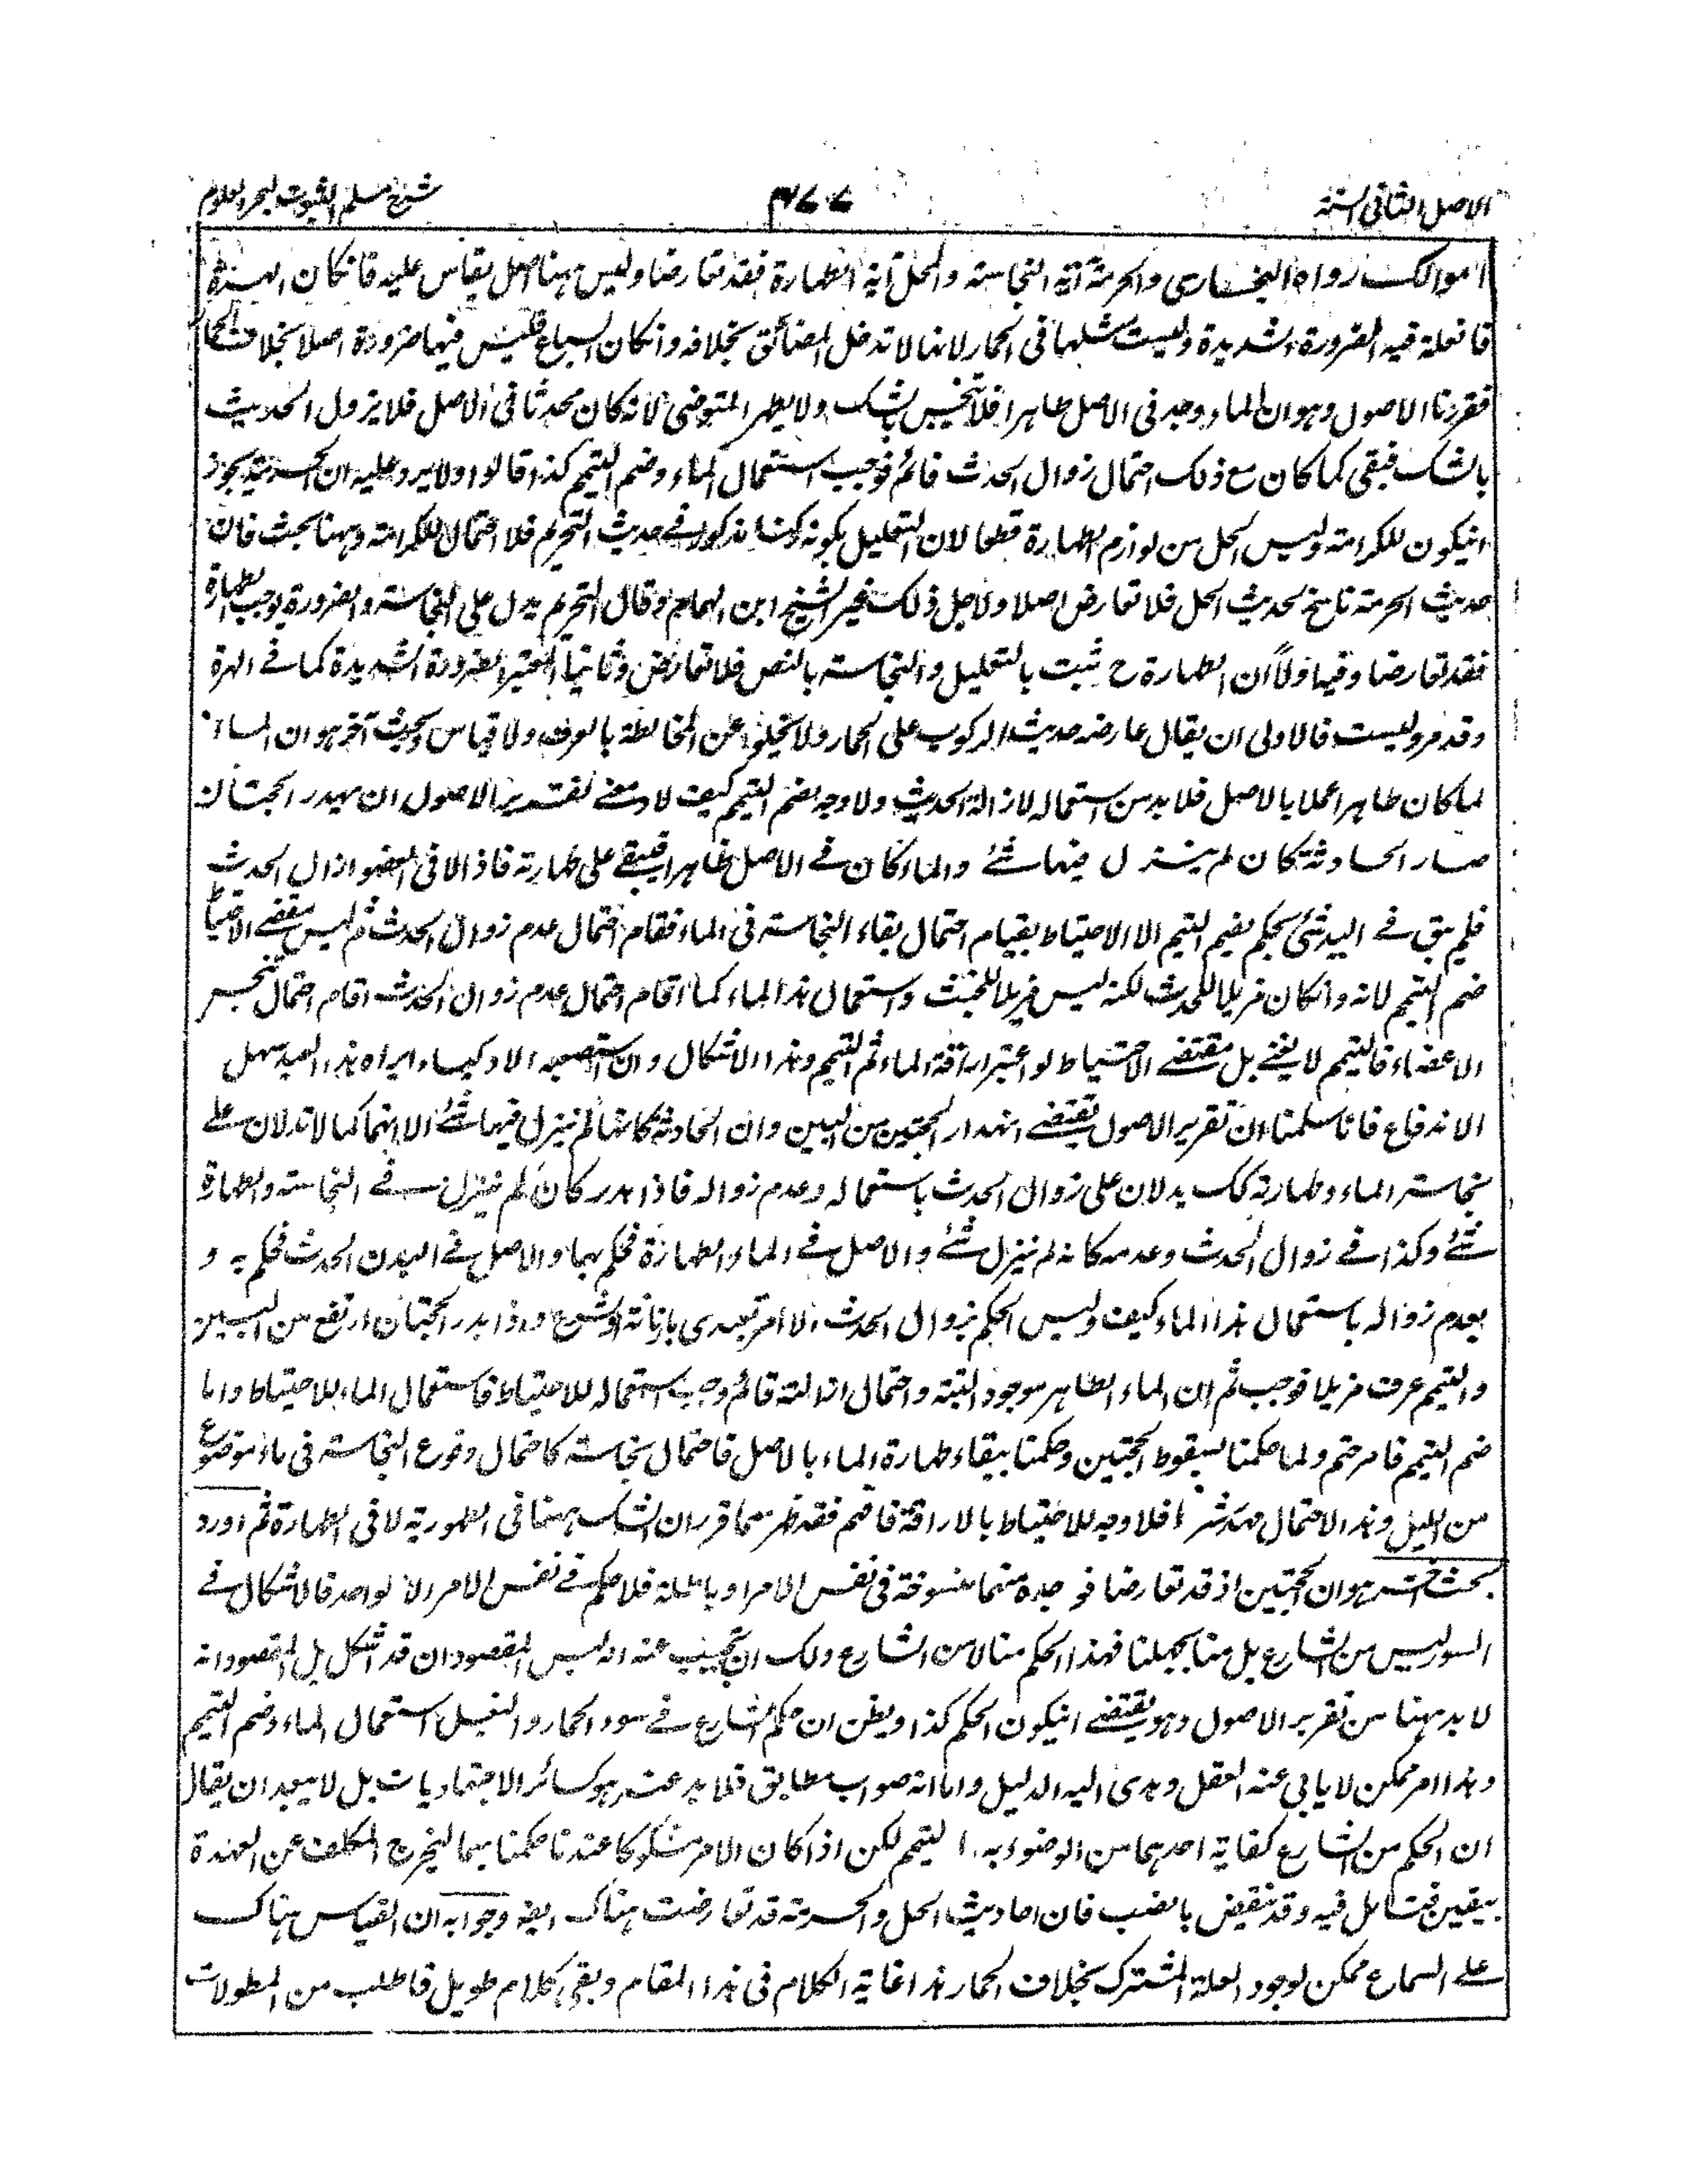 الاصل الثانی السنة
شرح مسلم الثبوت لبحر العلوم
اموالک رواه البخاری والحرمة آیة النجاسته والحل آیة الطهارة فقد تعارضا ولیس ههنا اصل یقاس علیه فانکان الهرة
فالعلة فیه الضرورة الشدیدة ولیست مثلها فی الحمار لانها لا تدخل المضائق بخلافه وانکان السباع فلیس فیها ضرورة اصلا بخلاف الحمار
فقررنا الاصول وهو ان الماء وجد فی الاصل طاهرا فلا یتنجس بالشک ولا یطهر المتوضی لانه کان محدثا فی الاصل فلا یزول الحدیث
بالشک فبقی کما کان مع ذلک احتمال زوال الحدث قائم فوجب استعمال الماء وضم التیمم کذا قالوا ولا یرد علیه ان الحرمة یجوز
انیکون للکرامته ولیس الحل من لوازم الطهارة قطعا لان التعلیل بکونه رکسا مذکور فے حدیث التحریم فلا احتمال للکرامته وههنا بحث فان
حدیث الحرمة ناسخ لحدیث الحل فلا تعارض اصلا ولاجل ذلک غیر الشیخ ابن الهمام وقال التحریم یدل علی النجاسته والضرورة یوجب الطهارة
فقد تعارضا وفیه اولاً ان الطهارة ح ثبت بالتعلیل والنجاسته بالنص فلا تعارض وثانیاً المعتبر الضرورة الشدیدة کما فے الهرة
وقد مر ولیست فالاولی ان یقال عارضه حدیث الرکوب علی الحمار ولا یخلو عن المخالطة بالعرق ولا قیاس وبحث آخر هو ان الماء
لما کان طاهرا عملا بالاصل فلا بد من استعماله لازالة الحدیث ولا وجه لضم التیمم کیف لا ومعنے تقریر الاصول ان یهدر الحجتان
صار الحادثة کان لم ینزل فیها شئے والماء کان فے الاصل طاهرا فیبقے علی طهارته فاذا لاقی العضو ازال الحدث
فلم یبق فے الید شئ یحکم بضم التیمم الا الاحتیاط بقیام احتمال بقاء النجاسته فی الماء فقام احتمال عدم زوال الحدث ثم لیس مقتضے الاحتیاط
ضم التیمم لانه وانکان مزیلا للحدث لکنه لیس مزیلا للخبث واستعمال هذا الماء کما اقام احتمال عدم زوال الحدث اقام احتمال تنجس
الاعضاء فالتیمم لا یغنے بل مقتضے الاحتیاط لو اعتبر اراقة الماء ثم التیمم وهذا الاشکال وان استصعبه الاذکیاء وایراه هذا العبد سهل
الاندفاع فانا سلمنا ان تقریر الاصول یقتضے انهدار الحجتین من البین وان الحادثة کانها لم ینزل فیها شئے الا انهما کما لا تدلان علے
نجاسته الماء وطهارته کک یدلان علی زوال الحدث باستعماله وعدم زواله فاذا هدر کان لم ینزل فے النجاسته والطهارة
شئے وکذا فے زوال الحدث وعدمه کانه لم ینزل شئے والاصل فے الماء الطهارة فحکم بها والاصل فے البدن الحدث فحکم به و
بعدم زواله باستعمال هذا الماء کیف ولیس الحکم بزوال الحدث الا امر تعبدی بابانة الشرع واذا هدر الحجتان ارتفع من البین
والتیمم عرف مزیلا فوجب ثم ان الماء الطاهر موجود البتة واحتمال ازالته قائم وجب استعماله للاحتیاط فاستعمال الماء للاحتیاط واما
ضم التیمم فامر حتم ولما حکمنا بسقوط الحجتین وحکمنا ببقاء طهارة الماء بالاصل فاحتمال نجاسته کاحتمال وقوع النجاسته فی ماء موضوع
من اللیل وهذا الاحتمال هدر شرعا فلا وجه للاحتیاط بالاراقة فافهم فقد ظهر مما قرر ان الشک ههنا فی الطهوریة لا فی الطهارة ثم اورد
بحث آخر هو ان الحجتین اذ قد تعارضا فواحدة منهما منسوخة فی نفس الامر او باطلة فلا حکم فے نفس الامر الا لواحد فالاشکال فے
السور لیس من الشارع بل منا بجهلنا فهذا الحکم منا لا من الشارع ولک ان تجیب عنه انه لیس المقصود ان قد اشکل بل المقصود انه
لا بد ههنا من تقریر الاصول وهو یقتضے انیکون الحکم کذا ویظن ان حکم الشارع فے سور الحمار والبغل استعمال الماء وضم التیمم
وهذا امر ممکن لا یابی عنه العقل وهدی الیه الدلیل واما انه صواب مطابق فلا یدعی هو کسائر الاجتهادیات بل لا یبعد ان یقال
ان الحکم من الشارع کفایة احدهما من الوضوء به او التیمم لکن اذا کان الامر مشکوکا عندنا حکمنا بهما لیخرج المکلف عن العهدة
بیقین فتامل فیه وقد نقیض بالضب فان احادیث الحل والحرمته قد تعارضت هناک ایضه وجوابه ان القیاس هناک
علے السباع ممکن لوجود العلة المشترک بخلاف الحمار هذا غایة الکلام فی هذا المقام وبقی کلام طویل فاطلب من المطولات